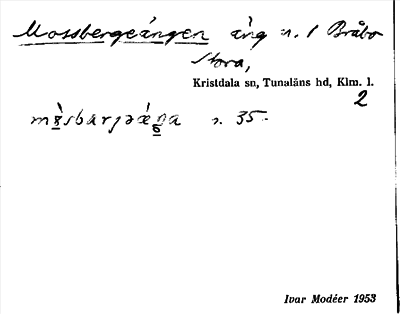 Mossbergeängen äng n. 1 Bråbo
Stora,
Kristdala sn, Tunaläns hd, Klm. l.
2
s. 35.
Ivar Modéer 1953